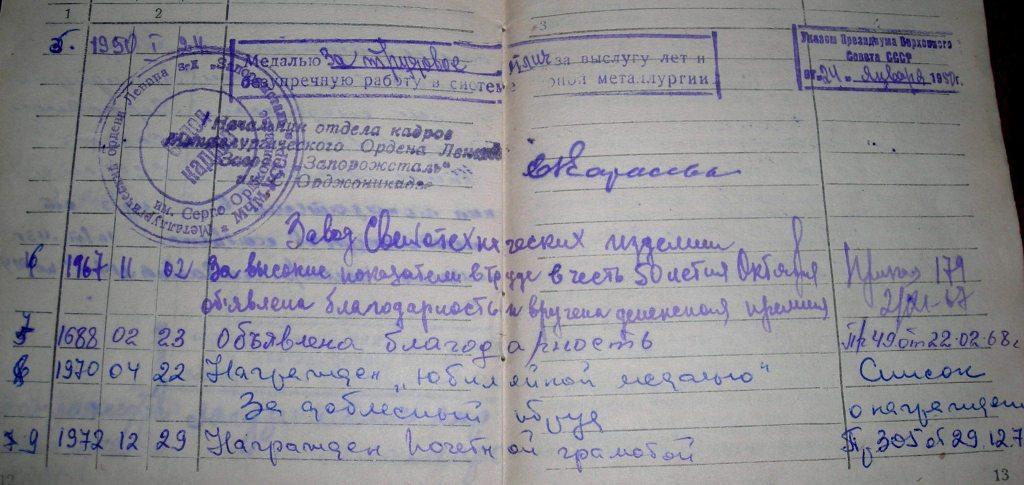 1 2 3
5. 1950 I 24 Медалью За трудовое отличие за выслугу лет и
безупречную работу в системе черной металлургии
Указом Президиума Верховного
Совета СССР
от 24 января 1950г.
Начальник отдела кадров
Металлургического Ордена Ленина
Завода „Запорожсталь"
Орджоникидзе
Металлургический ордена Ленина з-д „Запорожсталь"
им. Серго Орджоникидзе
МЧМ-СССР
Отдел
кадров
Завод Светотехнических изделий
6 1967 11 02 За высокие показатели в труде в честь 50 летия Октября Приказ 179
объявлена благодарность и вручена денежная премия 2/XI-67
1688 02 23 Объявлена благодарность Пр 49 от 22.02.68г
1970 04 22 Награжден „юбилейной медалью" Список
За доблесный труд о награжден
9 1972 12 29 Награжден Почетной грамотой Пр 305 от 29.12.7
12 13